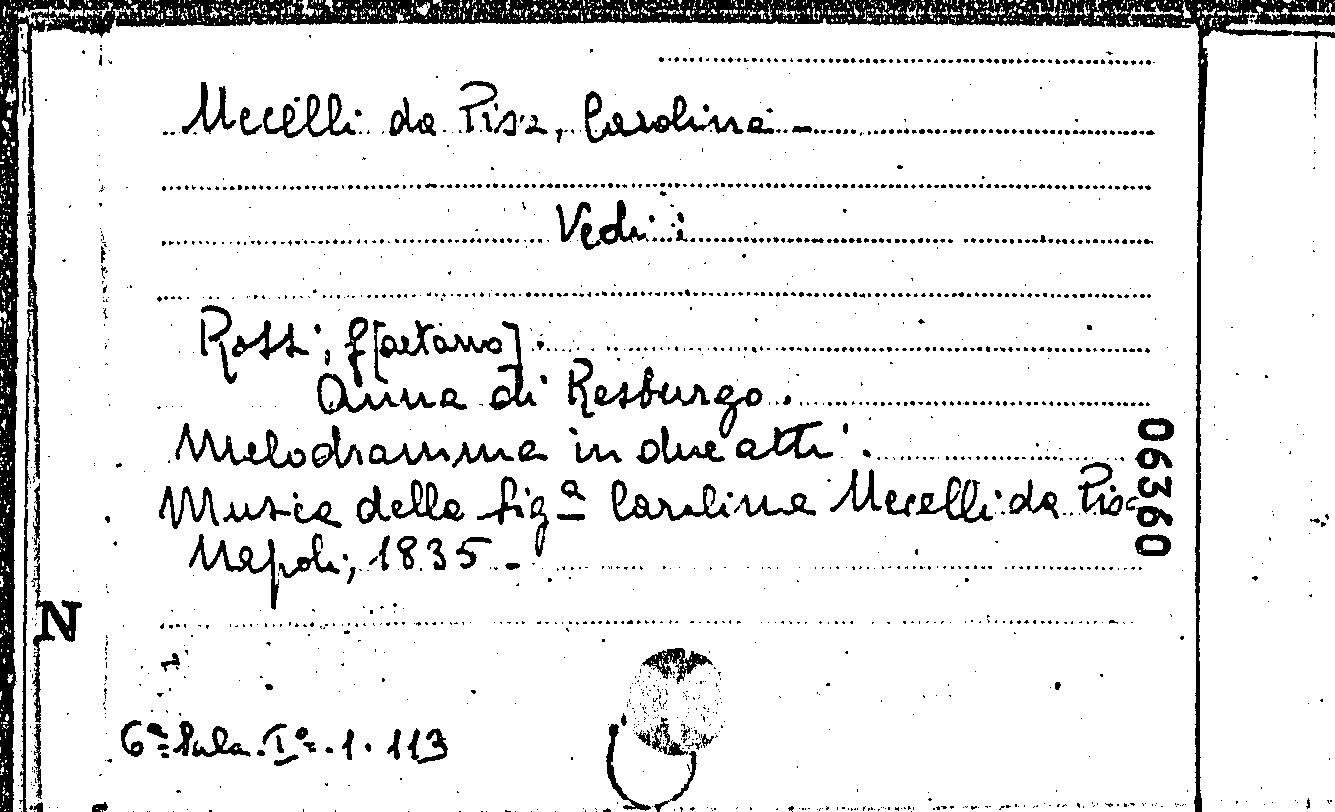 Uccelli da Pisa, Carolina -
Vedi:
Rossi, G[aetano].
Anna di Resburgo.
Melodramma in due atti.
Musica della Sigª Carolina Uccelli da Pisa
Napoli, 1835 -
06360
N
6ª Sala. Iª. 1. 113